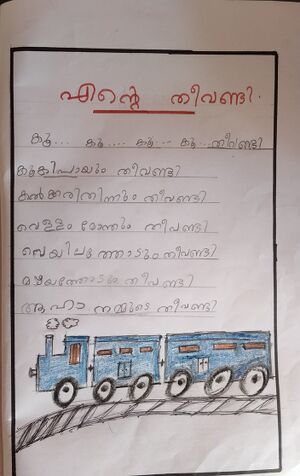 എന്റെ തീവണ്ടി
കൂ.... കൂ.... കൂ... കൂ... തീവണ്ടി
കൂകിപ്പായും തീവണ്ടി
കൽക്കരിതിന്നും തീവണ്ടി
വെള്ളം മോന്തും തീവണ്ടി
വെയിലത്തോടും തീവണ്ടി
മഴയത്തോടും തീവണ്ടി
ആഹാ നമ്മുടെ തീവണ്ടി